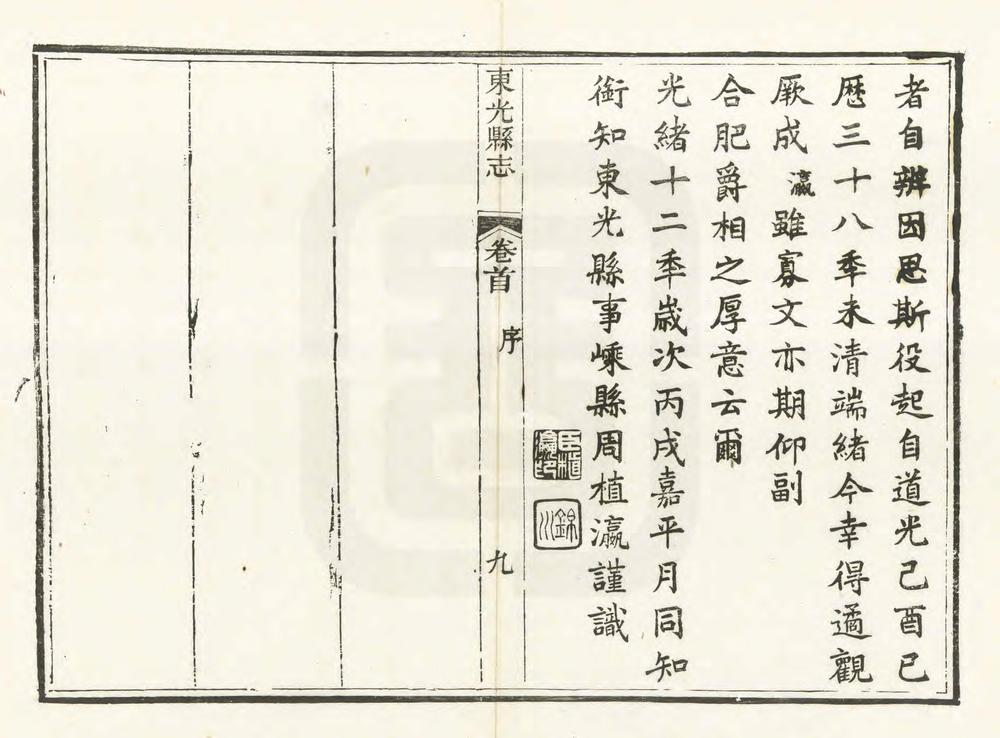 者自辨因思斯役起自道光己酉已
歷三十八秊未清端緒今幸得遹觀
厥成瀛雖寡文亦期仰副
合肥爵相之厚意云爾
光緒十二秊歲次丙戌嘉平月同知
銜知東光縣事嵊縣周植瀛謹識
臣植瀛印
錦川
東光縣志
卷首
序
九